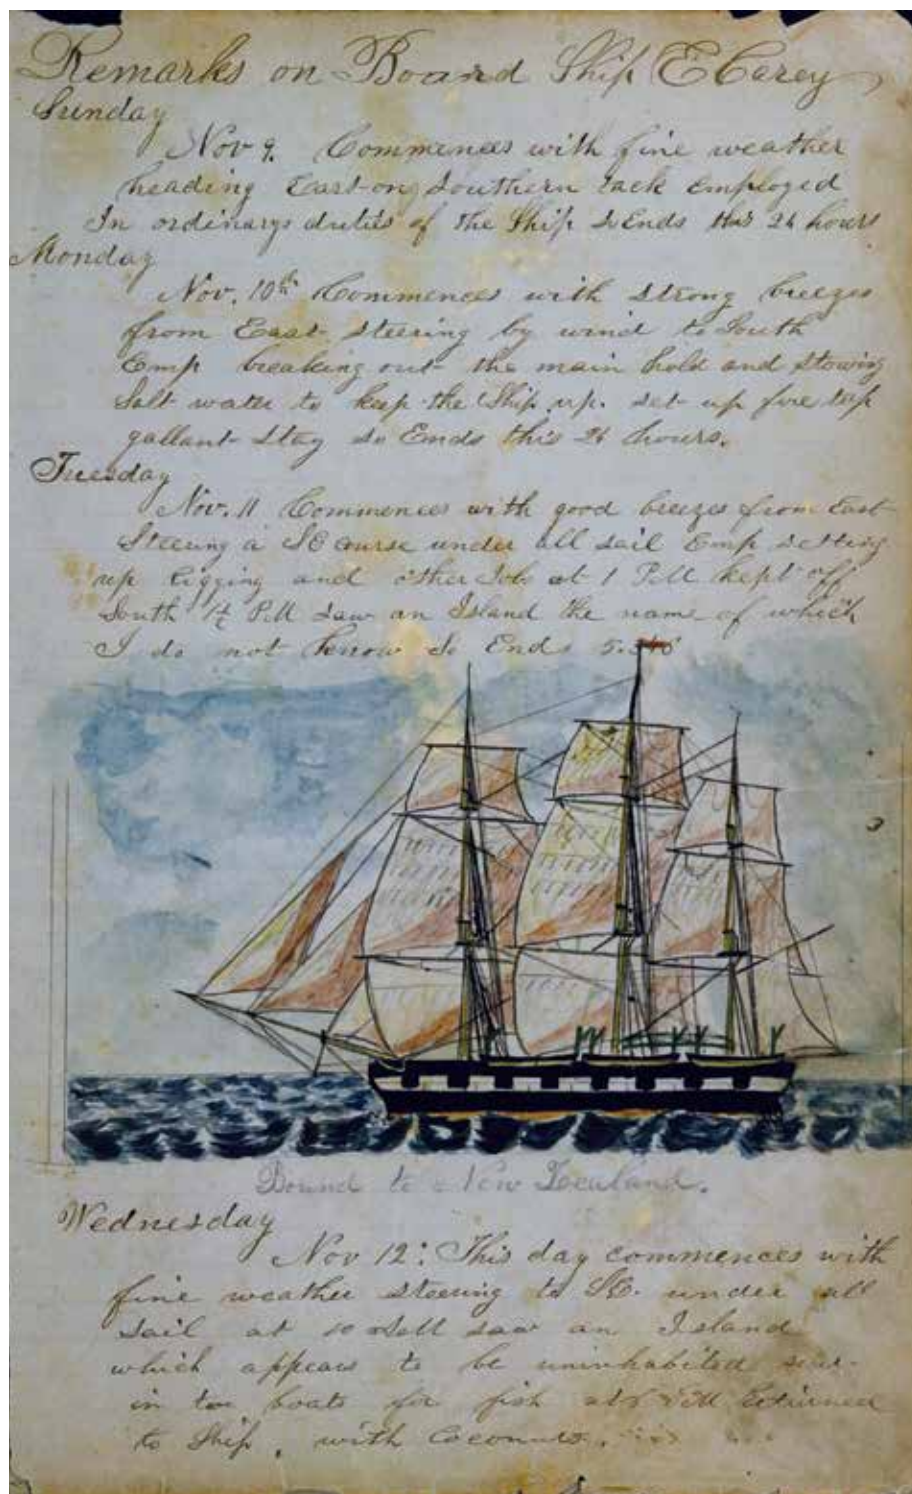 Remarks on Board Ship E Carey
Sunday
Nov 9. Commences with fine weather
heading East on Southern tack employed
In ordinarys duties of the Ship So Ends this 24 hours
Monday
Nov. 10th Commences with strong breezes
from East. Steering by wind to South
Emp breaking out the main hold and stowing
Salt water to keep the Ship up. set up fore top
gallant Stay So Ends this 24 hours.
Tuesday
Nov. 11 Commences with good breezes from East
Steering a SE course under all sail Emp setting
up Rigging and other Jobs at 1 P.M kept off
South P.M Saw an Island the name of which
I do not know So Ends
Bound to New Zealand.
Wednesday
Nov 12: This day commences with
fine weather Steering to SE. under all
Sail at 10 saw an Island
which appears to be uninhabited
in two boats for fish at Returned
to Ship, with Coconuts.